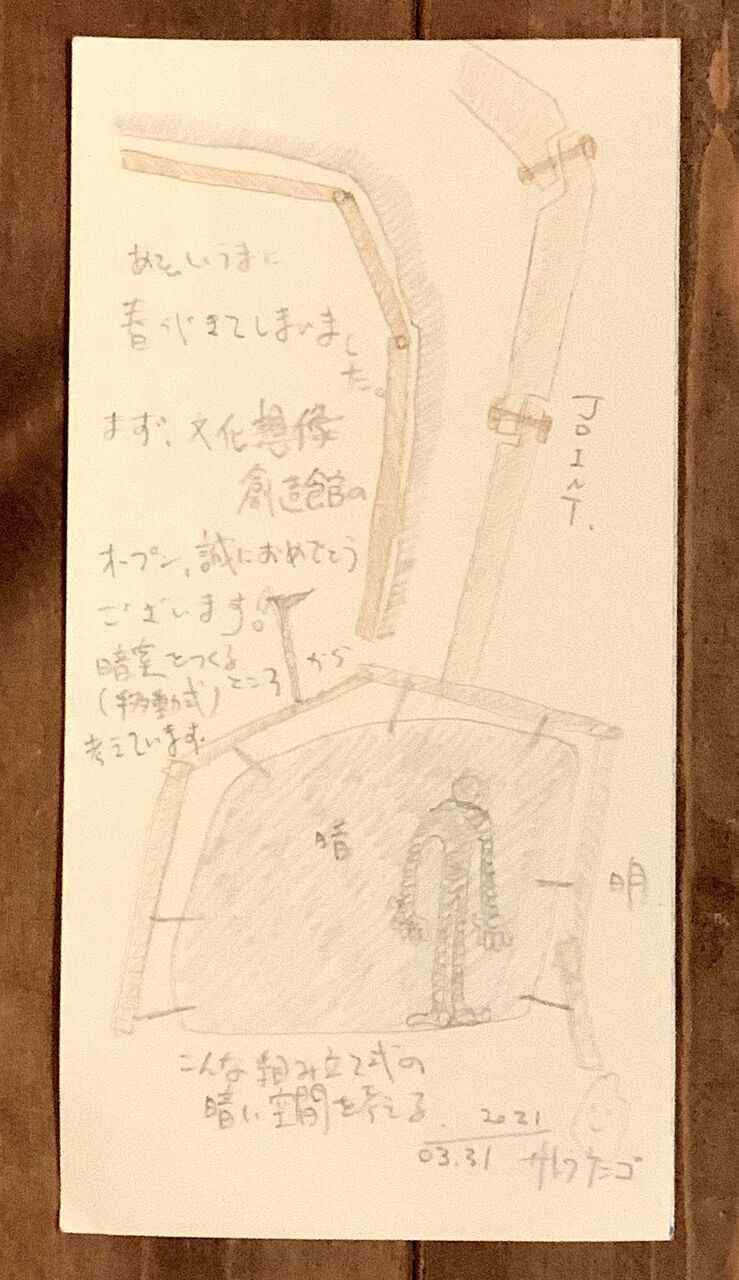 あっというまに
春がきてしまいました。
まず、文化想像
創造館の
オープン、誠におめでとう
ございます。
暗室をつくる
(移動式)ところから
考えています。
JOINT.
暗
明
こんな組み立て式の
暗い空間を考える.
2021
03.31